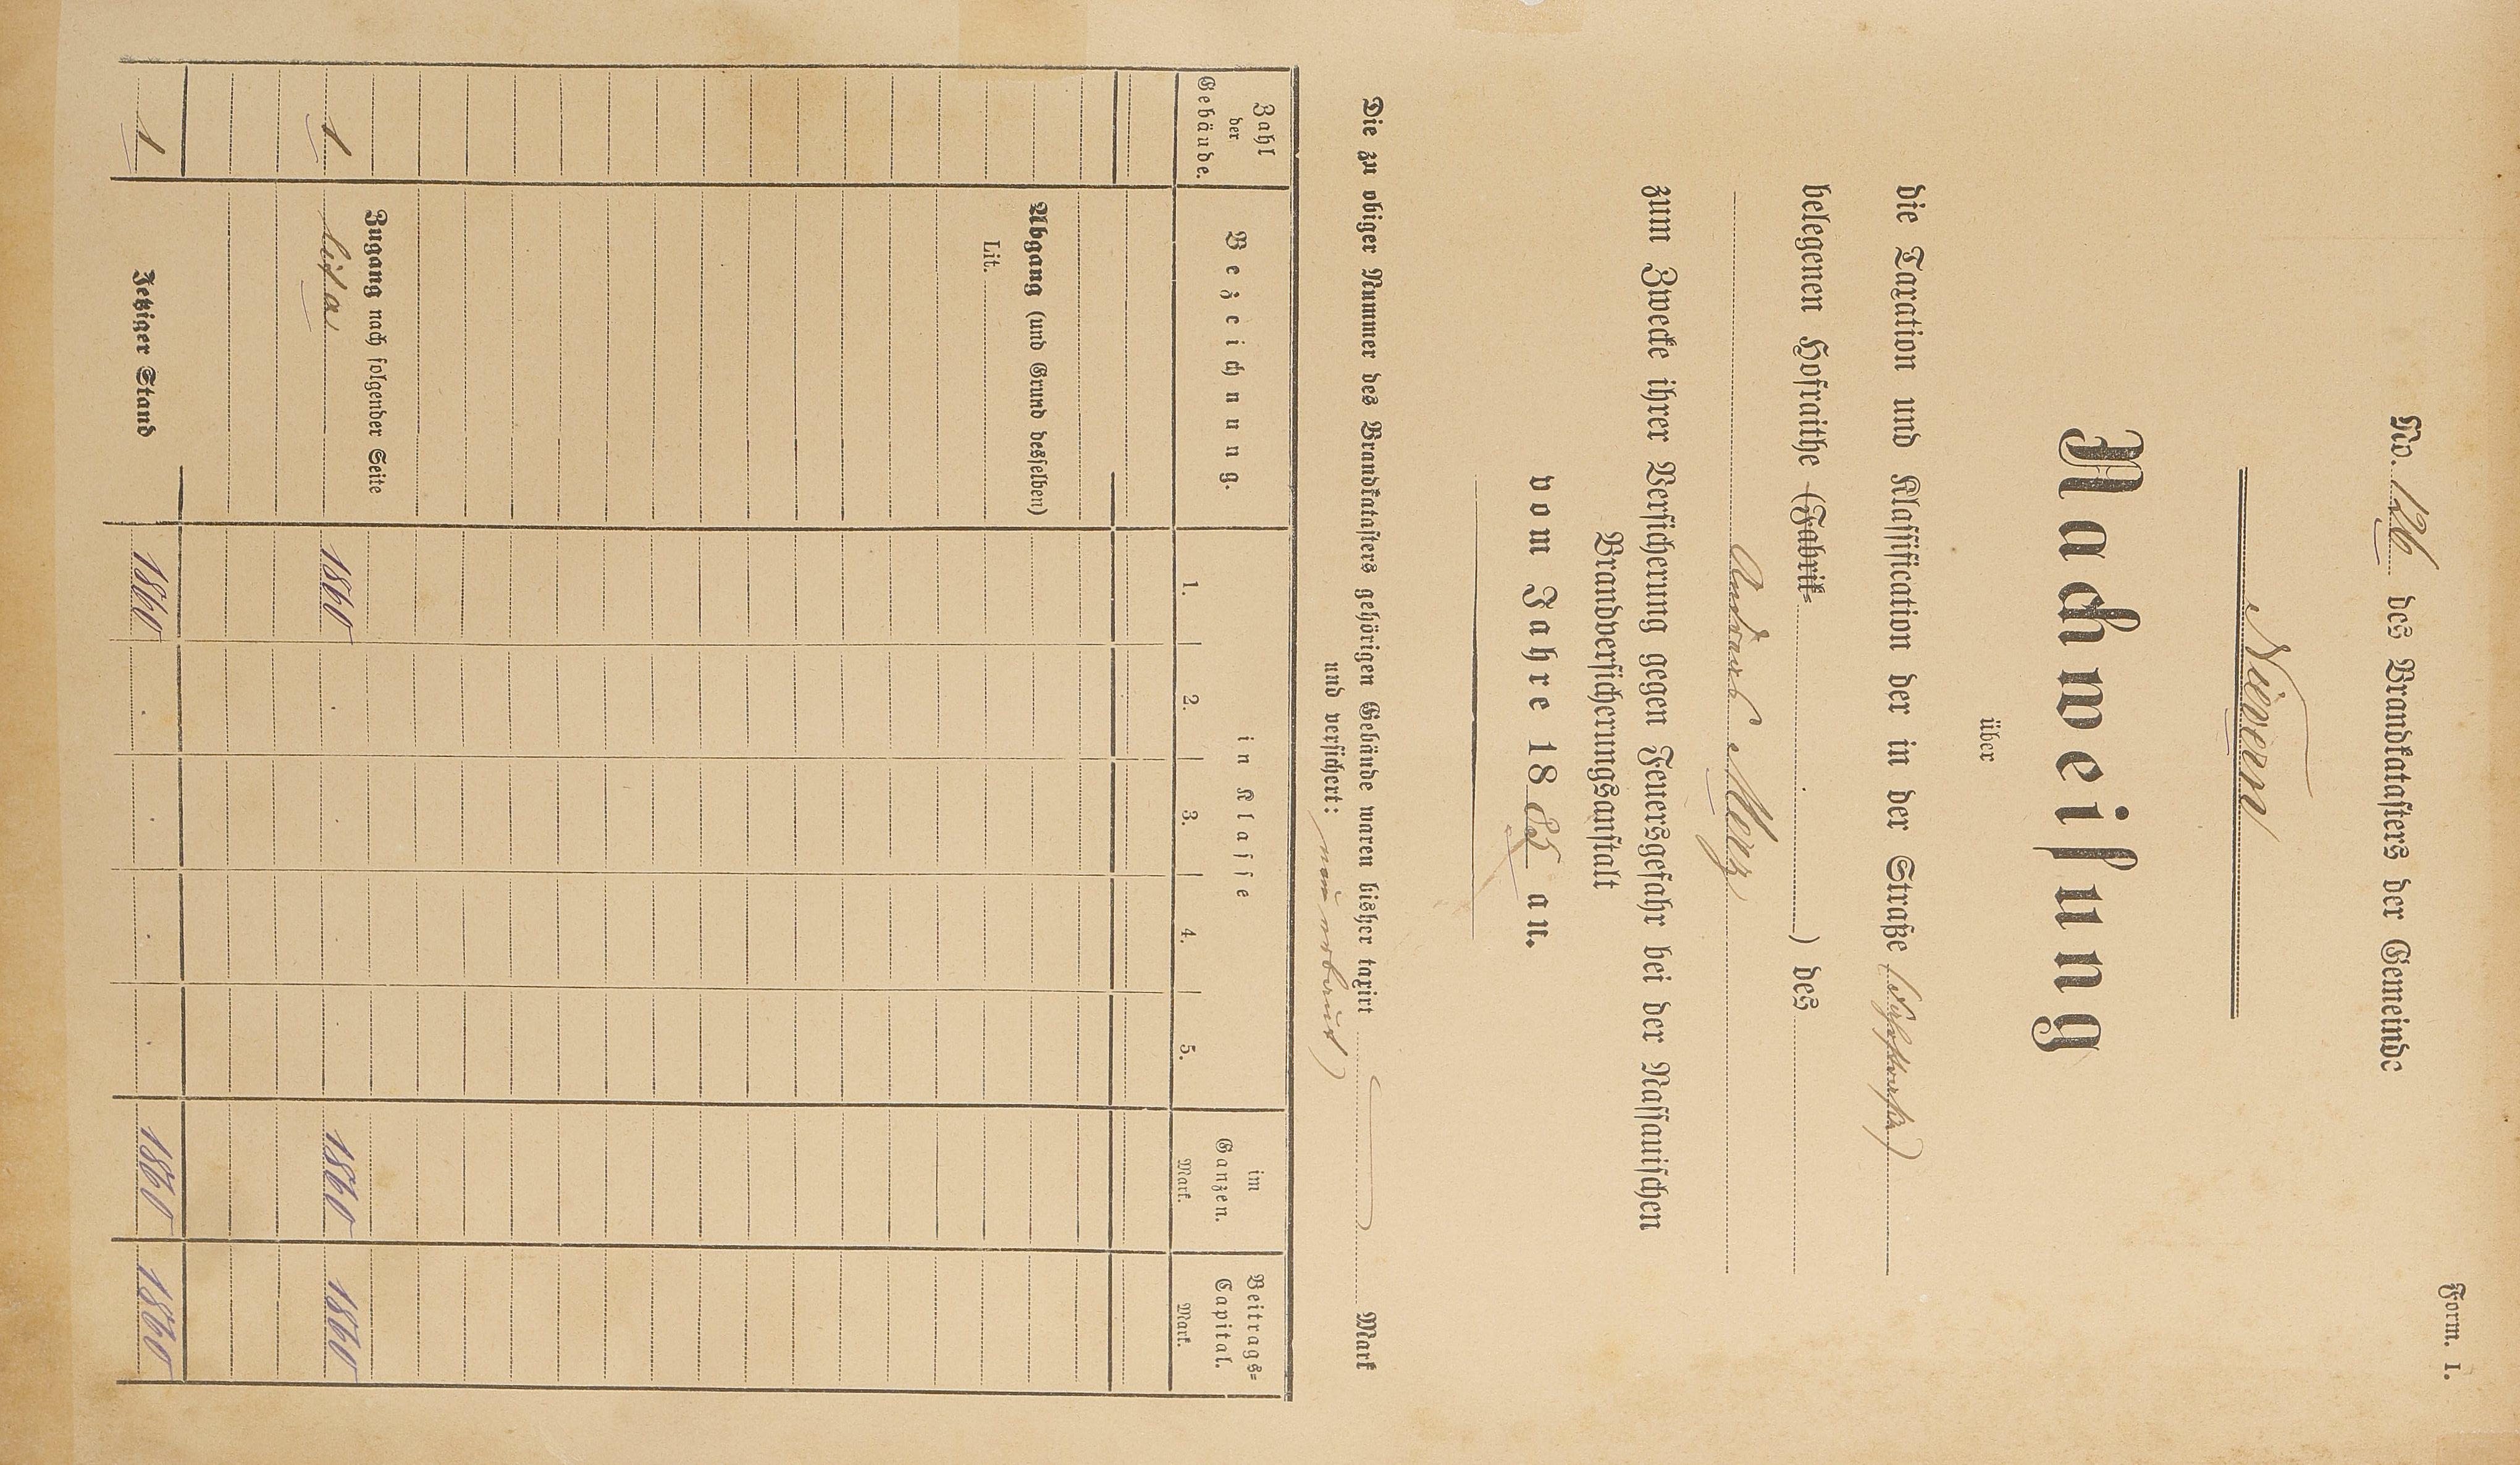 Form. I.
No. 126 des Brandkatasters der Gemeinde
Nievern
Nachweisung
über
die Taxation und Klassification der in der Straße
belegenen Hofraithe (Fabrik= ) des
Merz
zum Zwecke ihrer Versicherung gegen Feuersgefahr bei der Nassauischen
Brandversicherungsanstalt
vom Jahre 18 an.
Die zu obiger Nummer des Brandkatasters gehörigen Gebäude waren bisher taxirt Mark
und versichert: neu erbaut)
Zahl der Gebäude. Bezeichnung. in Klasse im Ganzen. Beitrags= Capital.
1. 2. 3. 4. 5. Mark. Mark.
Abgang (und Grund desselben)
Lit.
Zugang nach folgender Seite
1 lit a 1860 1860 1860
1 Jetziger Stand 1860 1860 1860